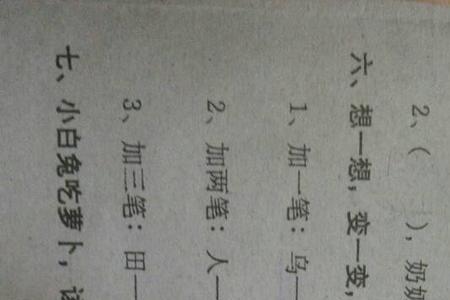 2、( )，奶奶
六、想一想，变一变，
1、加一笔：鸟一
2、加两笔：人一
3、加三笔：田一
七、小白兔吃萝卜，